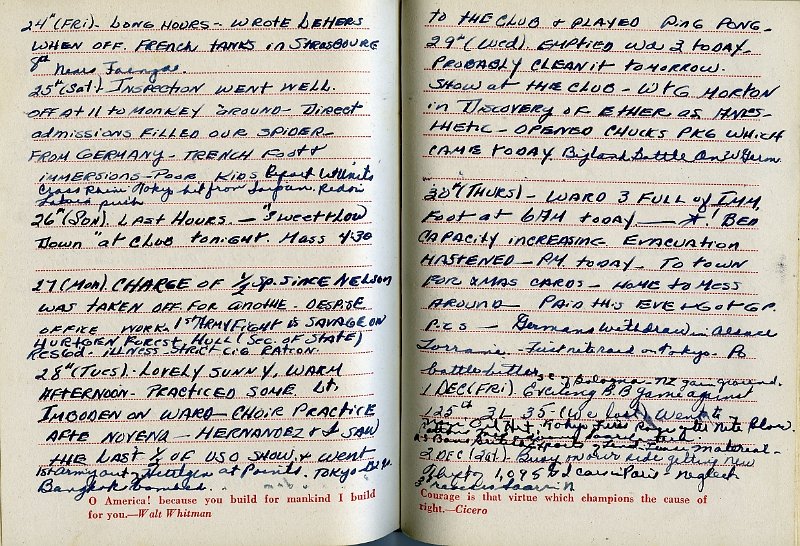 24th (FRI) - LONG HOURS - WROTE LETTERS
WHEN OFF. FRENCH TANKS in STRASBOURG
8th nears
25th (Sat). INSPECTION WENT WELL.
OFF AT 11 TO MONKEY AROUND - Direct
admissions FILLED OUR SPIDER -
FROM GERMANY - TRENCH FOOT &
IMMERSIONS - POOR KIDS Report W. Units
Cross Tokyo hit from Saipan.
push
26th (SUN). LAST HOURS. - "SWEET & LOW
DOWN" at CLUB TONIGHT. Mass 4:30
27 (Mon). CHARGE OF 1/2 SP. SINCE NELSON
WAS TAKEN OFF FOR ANOTHE - DESPISE
OFFICE WORK. 1st ARMY FIGHT IS SAVAGE ON
HURTGEN FOREST. HULL (SEC. OF STATE)
RESGd. - ILLNESS. STRICT CIG RATION.
28th (TUES). LOVELY SUNNY, WARM
AFTERNOON - PRACTICED SOME Lt.
IMBODEN ON WARD - CHOIR PRACTICE
AFTE NOVENA - HERNANDEZ & I SAW
THE LAST 1/2 OF USO SHOW, & WENT
1st army out of Hurtgen at Points. TOKYO
Bangkok bombed.
O America! because you build for mankind I build
for you.—Walt Whitman
TO THE CLUB & PLAYED PING PONG -
29th (Wed). EMPTIED Wd 3 TODAY.
PROBABLY CLEAN IT TOMORROW.
SHOW AT THE CLUB - WTG MORTON
in DISCOVERY OF ETHER AS ANES-
THETIC - OPENED CHUCKS PKG WHICH
CAME TODAY. Big land battle On W Germ.
30th (THURS) - WARD 3 FULL of IMM.
FOOT at 6 AM today - BED
CAPACITY INCREASING EVACUATION
HASTENED - PM TODAY - To TOWN
FOR XMAS CARDS - HOME to MESS
AROUND - PAID this EVE & GOT G.P.
P.C S - Germans withdraw in Alsace
Lorraine. - First nite raid on Tokyo. Po
battle bitter, E of Bologna - NZ gain ground.
1 DEC (FRI) Evening B B game against
125th 31 35 - (we lost) Went to
Hut, Tokyo Fires Nite Blow.
material -
2 DEC (Sat). Busy on our side getting new
1,095 in Paris - neglect
Courage is that virtue which champions the cause of
right.—Cicero